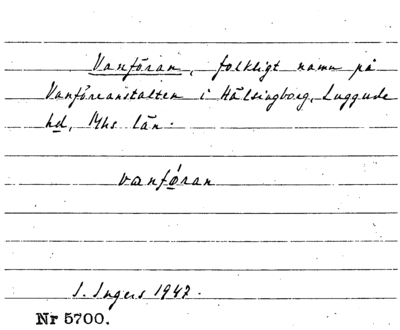 Vanföran, folkligt namn på
Vanföreanstalten i Hälsingborg, Luggude
hd, Mhs län.
vanföran
I. Ingers 1947.
Nr 5700.